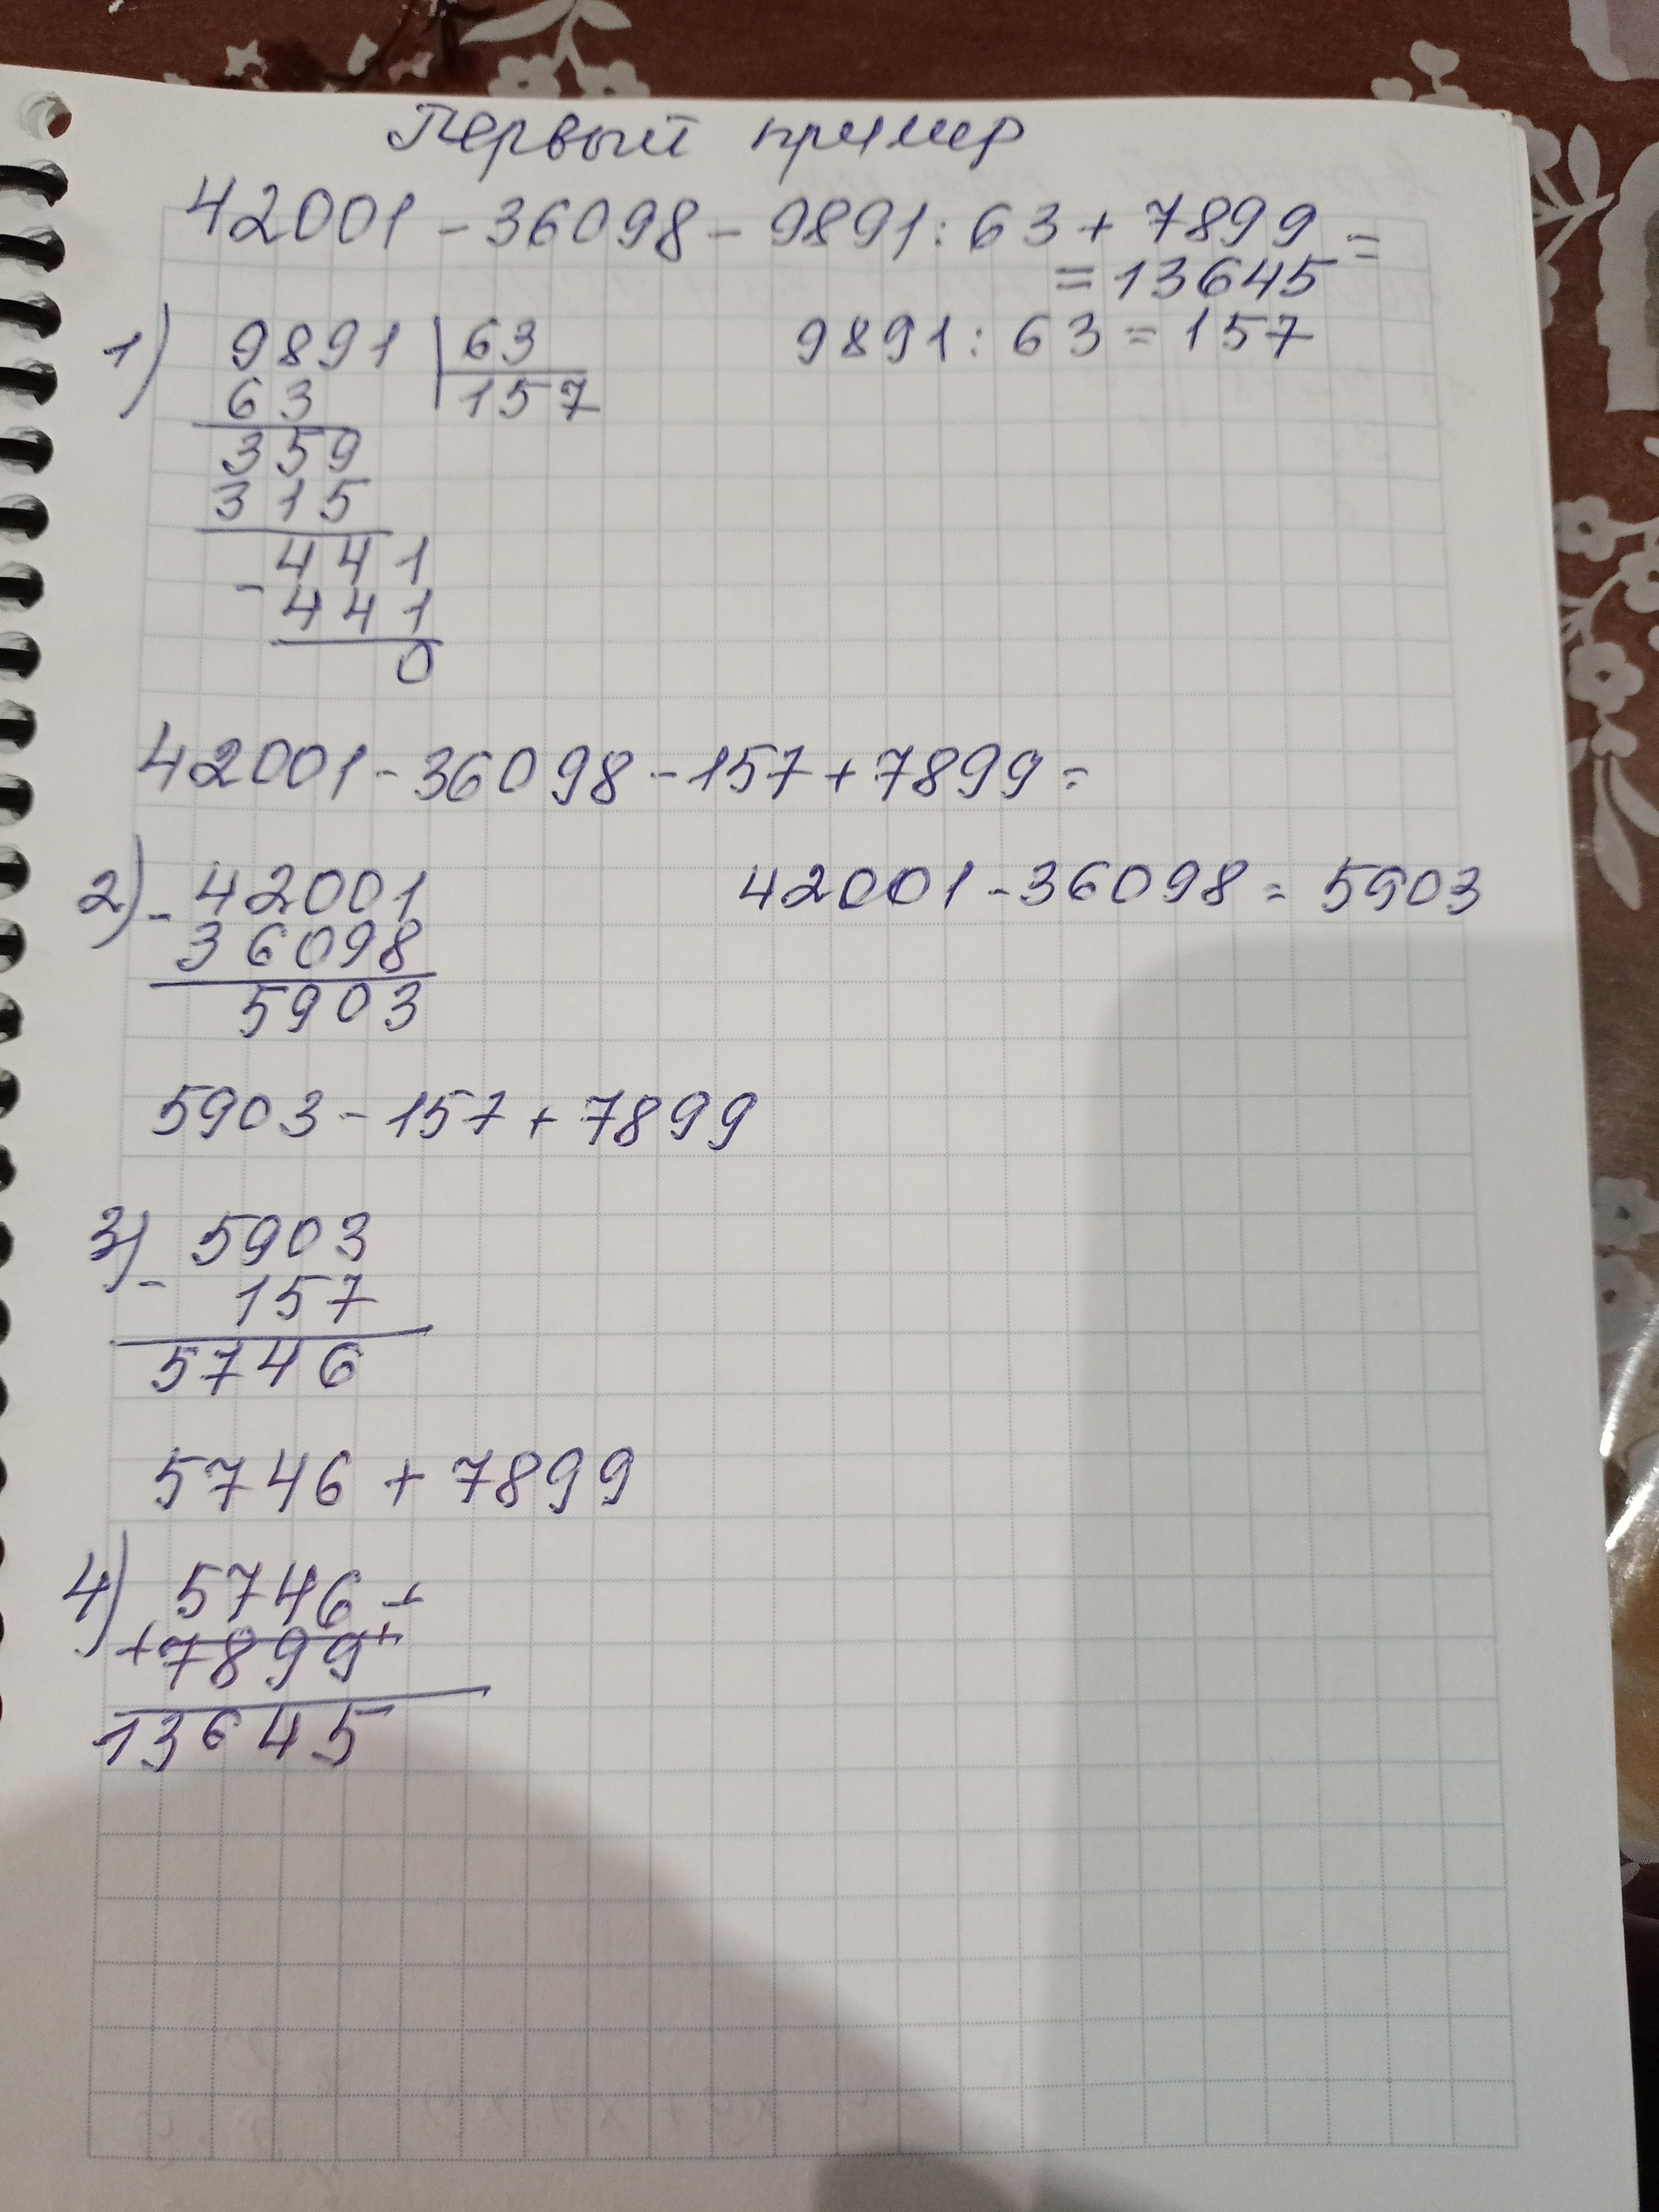 Первый пример
42001 - 36098 - 9891 : 63 + 7899 =
= 13645
1) 9891 63 9891 : 63 = 157
63 157
359
315
441
- 441
0
42001 - 36098 - 157 + 7899 =
2) - 42001 42001 - 36098 = 5903
36098
5903
5903 - 157 + 7899
3) 5903
- 157
5746
5746 + 7899
4) 5746 +
+ 7899 +
13645